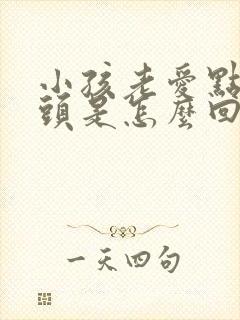 小孩老愛點
頭是怎麼回
一天四句